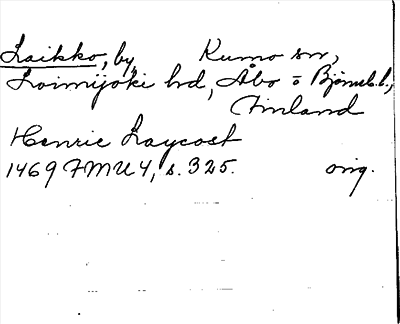 Laikko, by, Kumo sn,
Loimijoki hd, Åbo o Björneb. l.,
Finland
Henric Laycost
1469 FMU 4, s. 325. orig.